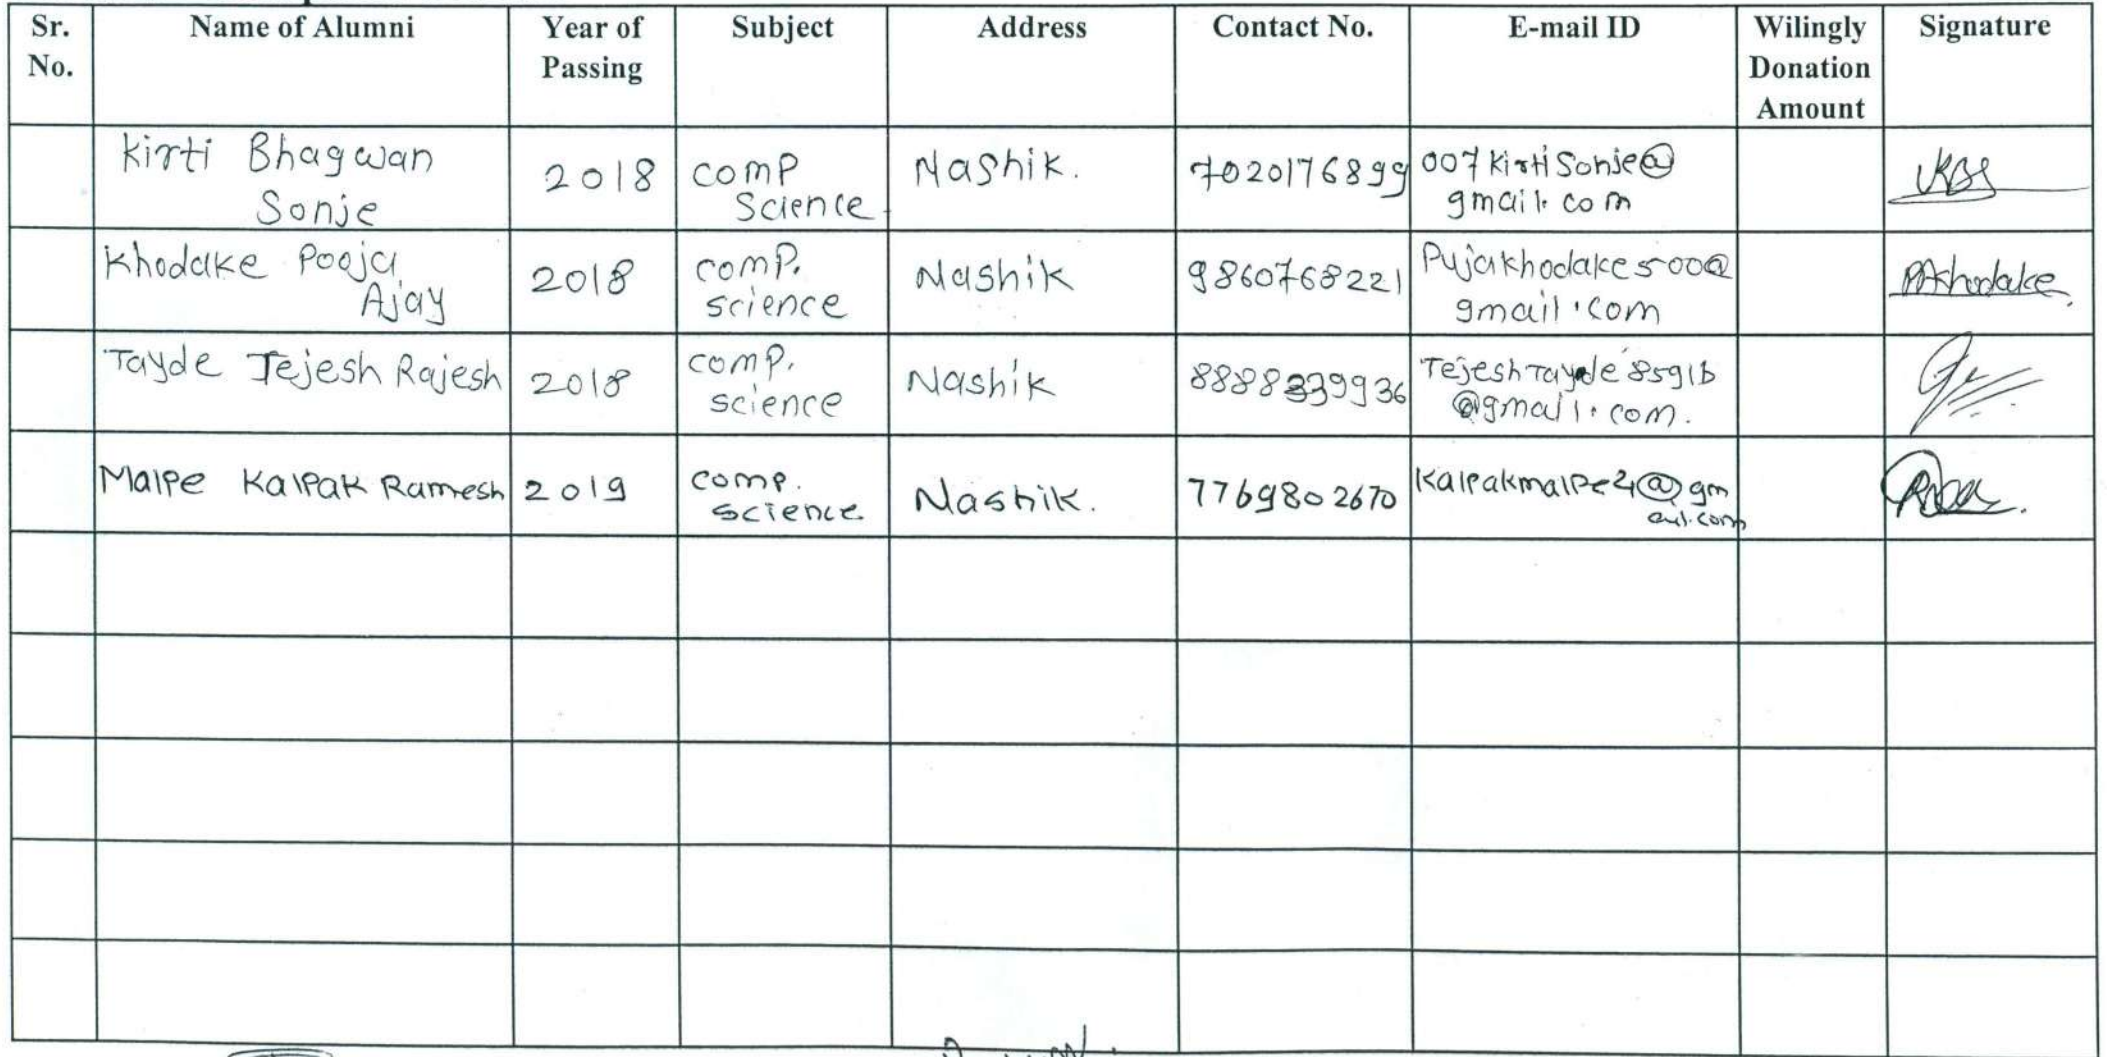 Sr. No. Name of Alumni Year of Passing Subject Address Contact No. E-mail ID Wilingly Donation Amount Signature
Kirti Bhagwan Sonje 2018 comp Science Nashik. 7020176899 007kirtiSonje@gmail.com
Khodake Pooja Ajay 2018 comp. science Nashik 9860768221 Pujakhodake500@gmail.com PAkhodake
Tayde Tejesh Rajesh 2018 comp. science Nashik 8888339936 @gmail.com.
Malpe Kalpak Ramesh 2019 comp. science Nashik. 7769802670 Kalpakmalpe24@gmail.com